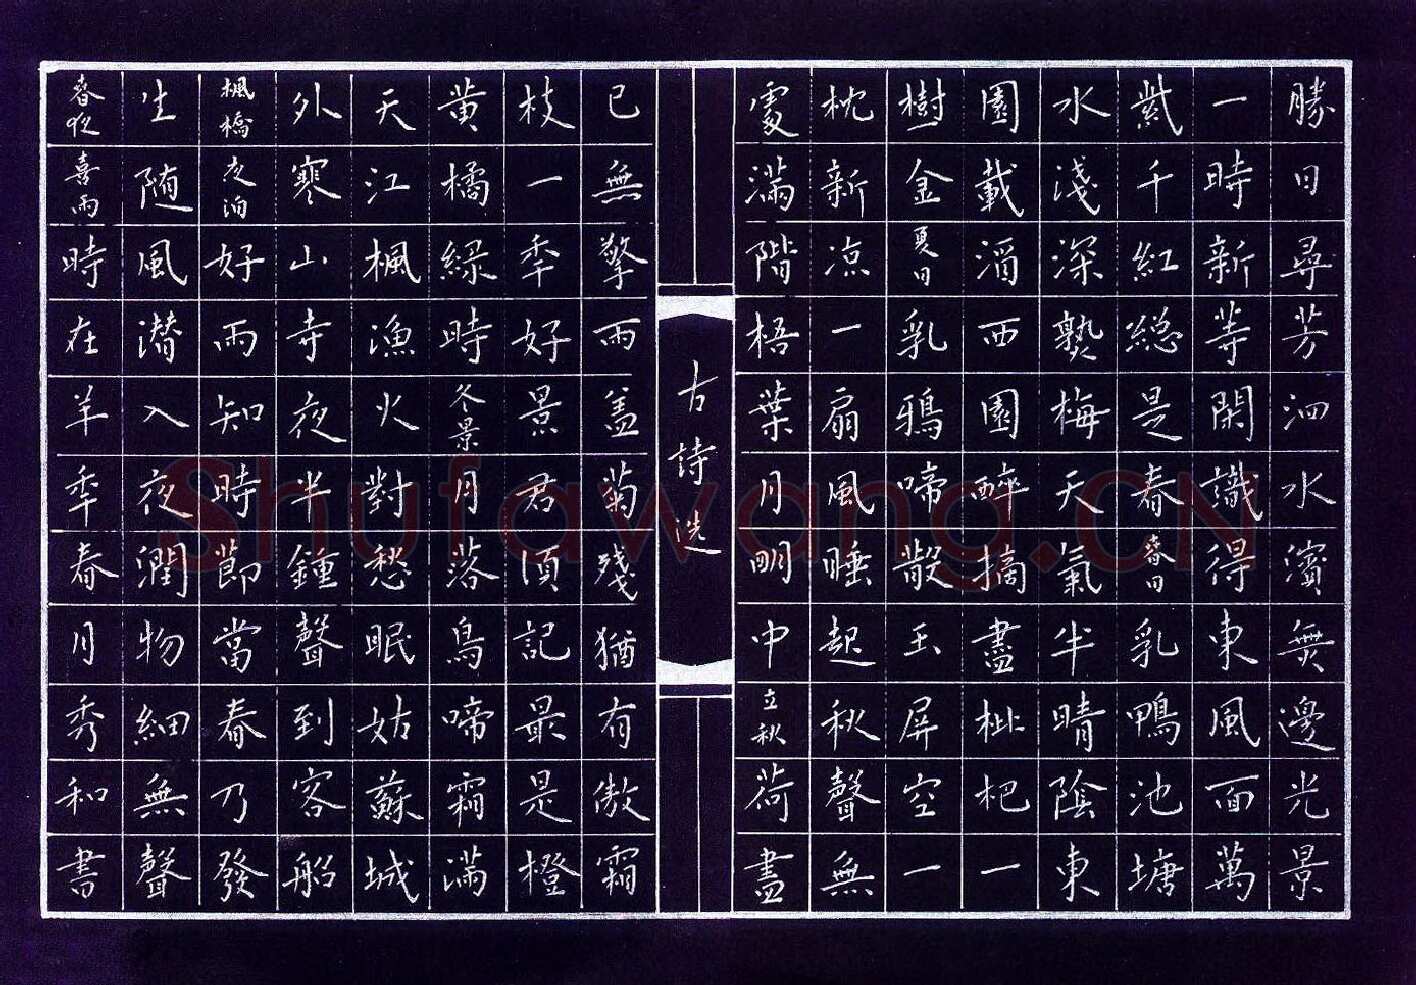 勝日尋芳泗水濱無邊光景
一時新等閑識得東風面萬
紫千紅總是春春日乳鴨池塘
水淺深熟梅天氣半晴陰東
園載酒西園醉摘盡枇杷一
樹金夏日乳鴉啼散玉屏空一
枕新凉一扇風睡起秋聲無
處滿階梧葉月明中立秋荷盡
古詩选
已無擎雨盖菊殘猶有傲霜
枝一年好景君須記最是橙
黄橘緑時冬景月落烏啼霜滿
天江楓漁火對愁眠姑蘇城
外寒山寺夜半鍾聲到客船
楓橋夜泊好雨知時節當春乃發
生随風潜入夜潤物細無聲
春夜喜雨時在羊年春月秀和書
Shufawang.CN